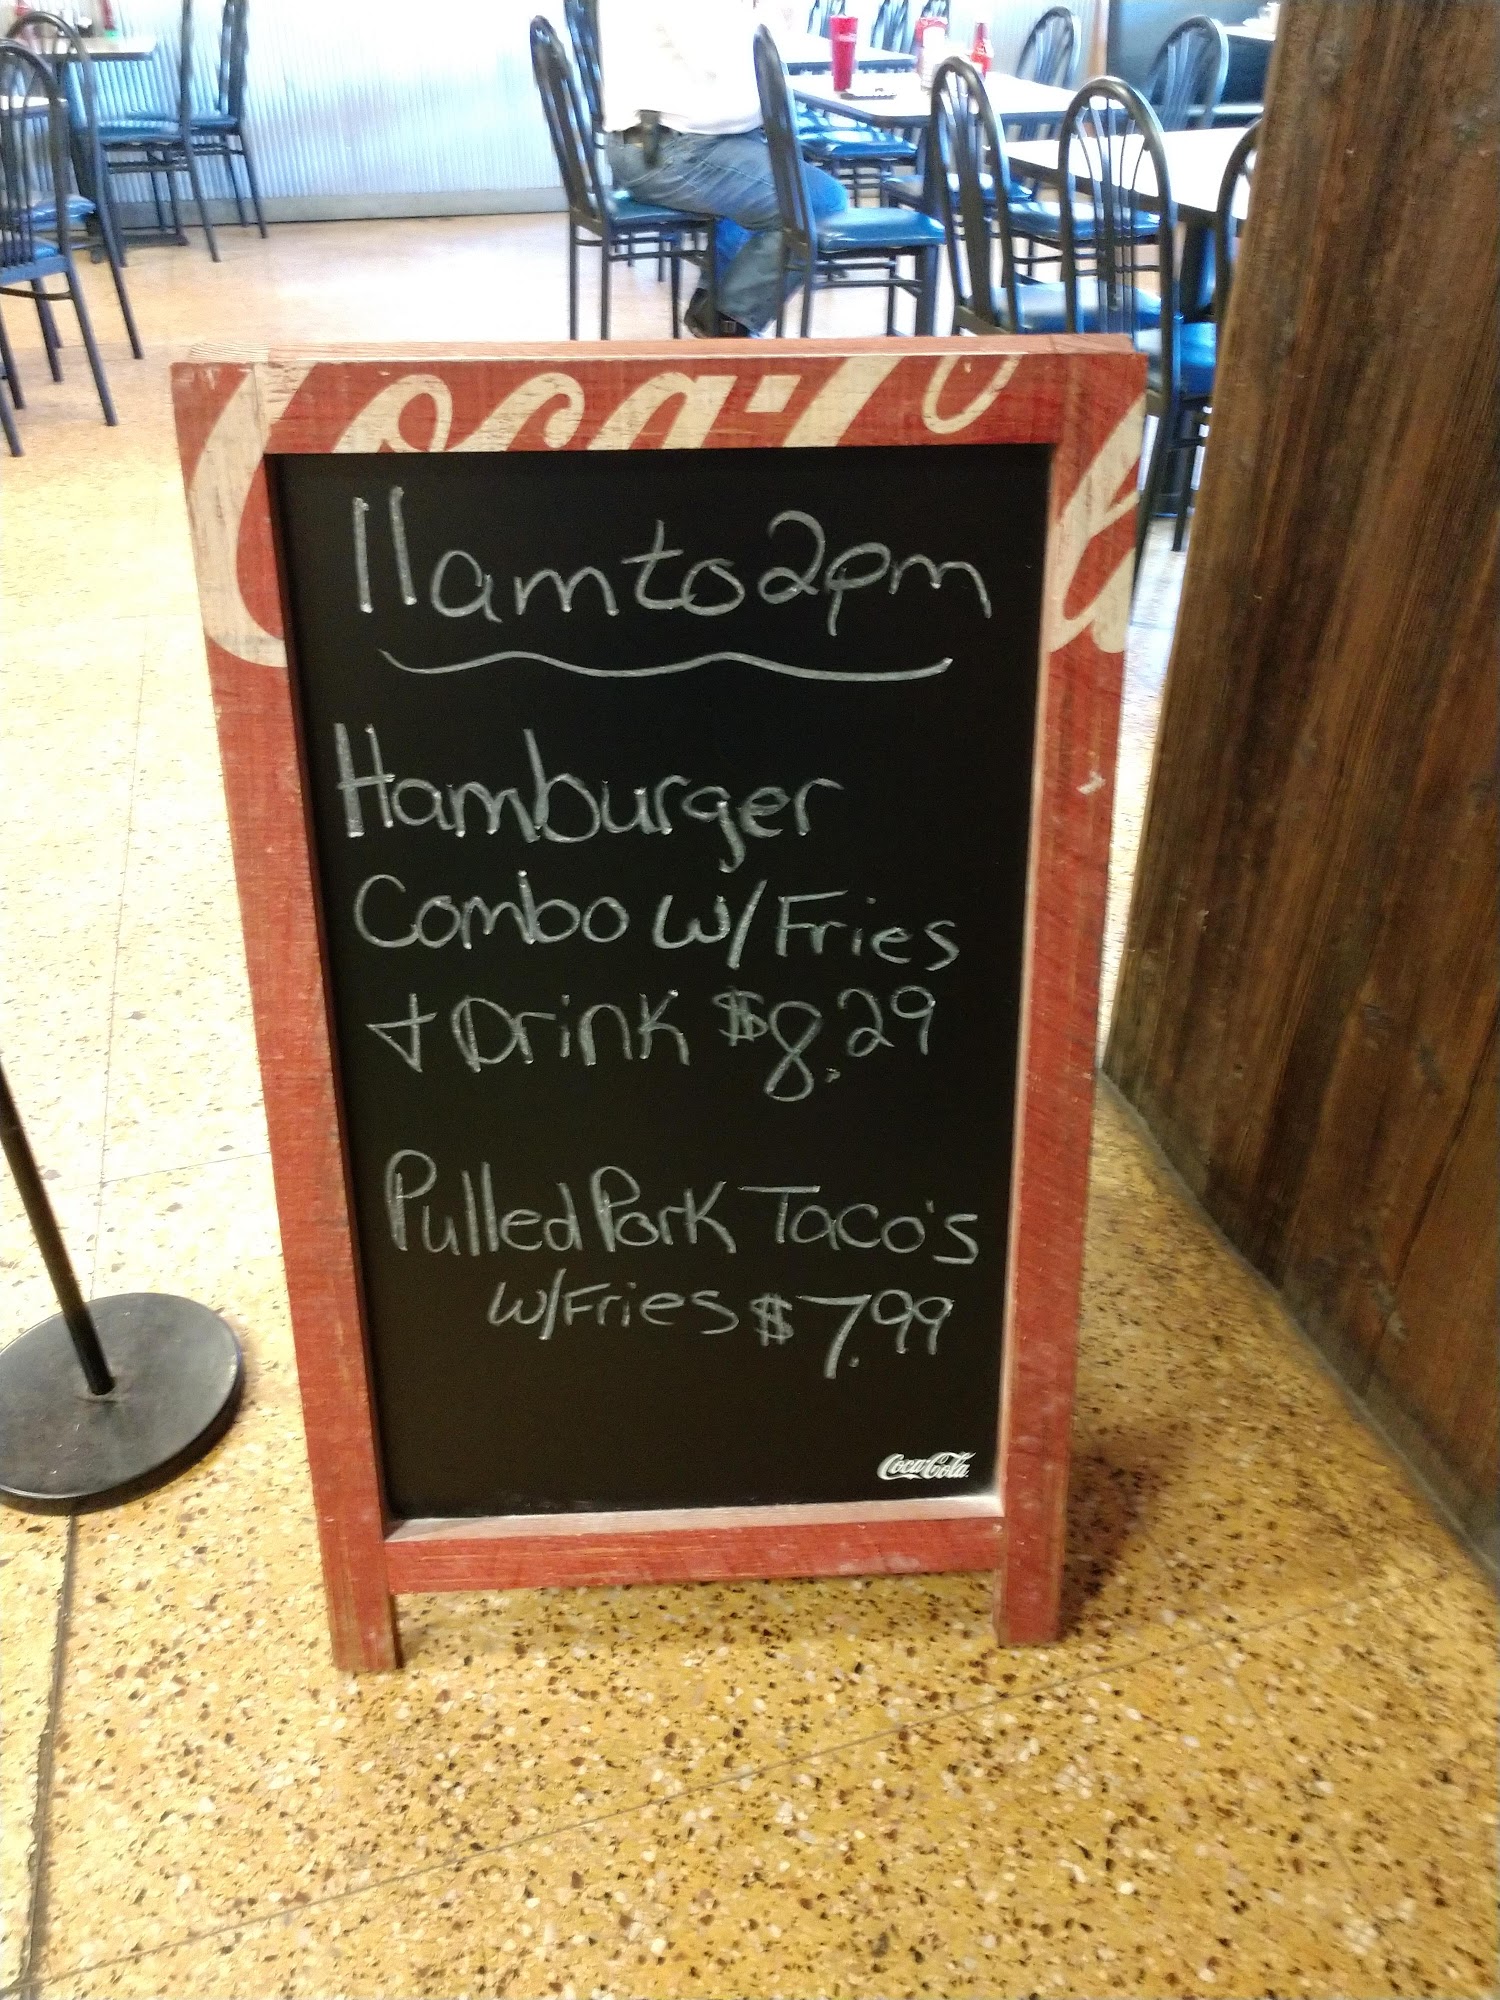 Coca-Cola
11am to 2pm
Hamburger
Combo w/Fries
+ Drink $8.29
Pulled Pork Taco's
w/Fries $7.99
Coca-Cola